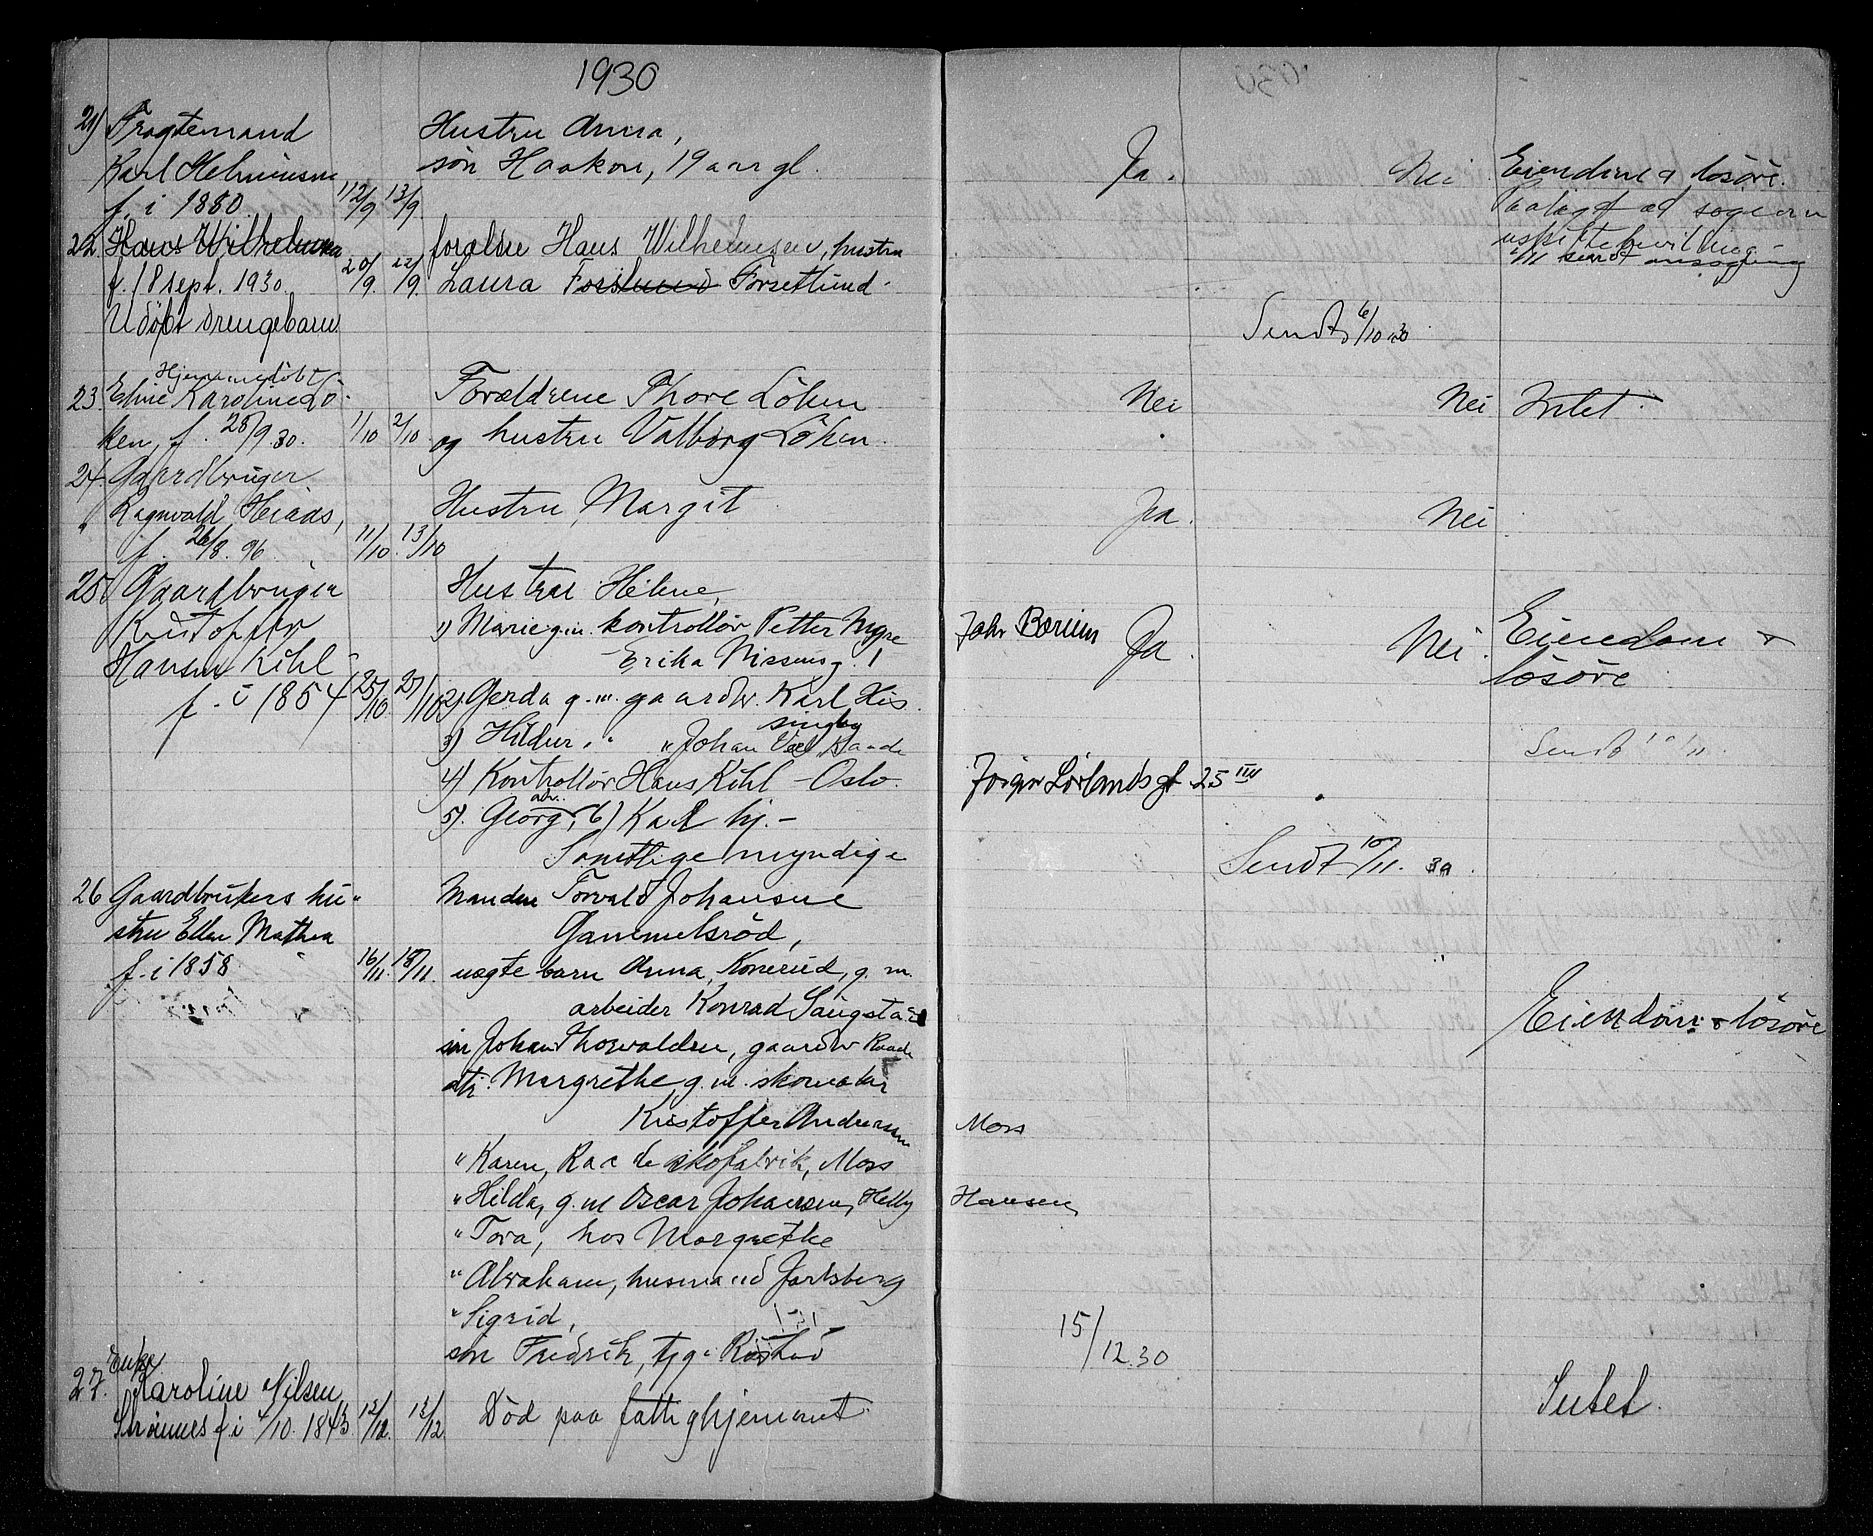 1930
21) Fragtemand
Karl Helminsen
f. i 1880
11/9 12/9 13/9
Hustru Anna,
søn Haakon, 19 aar gl.
Ja.
Nei
Eiendom & løsøre.
Paalagt at søge om
uskiftebevilling
sendt ansøgning
22. Hans Wilhelmsen
f. 18 sept. 1930
Udøpt drengebarn
20/9. 22/9.
forældre Hans Wilhelmsen, hustru
Laura Forslund Forsetlund.
Sendt 6/10 30
Hjemmedøbt
23. Eline Karoline Lö-
ken, f. 28/9 30.
1/10 2/10
Forældrene Thore Löken
og hustru Valborg Löken.
Nei
Nei
Intet.
24. Gaardbruger
Ragnvald Heiaas,
f. 26/8. 96.
11/10. 13/10
Hustru Margit
Ja.
Nei
25. Gaardbruger
Kristoffer
Hansen Kihl
f. i 1854
25/10 27/10
Hustru Helene,
1) Marie g.m. kontrollør Petter Myre
Erika Nissens g. 1
2) Gerda g.m. gaardbr. Karl His
singby
3) Hildur " " Johan Vael Raade
4) Kontrollør Hans Kihl - Oslo.
5). Georg, 6) Karl hj. -
Samtlige myndige
Jahr Bærum
Ja.
Nei.
Eiendom &
løsøre
Sendt 10/11
Jørgen Løvlands gt 25 III
Sendt 10/11. 30.
26 Gaardbrukers hu-
stru Ellen Mathea
f. i 1858
16/11. 18/11.
Manden Torvald Johansen
Gammelsrød,
uægte barn Anna Konerud, g. m.
arbeider Konrad Saugstad
søn Johan Thorvaldsen, gaardbr Raade
dtr. Margrethe g.m. skomaker
Kristoffer Andersen
Moss
" Karen, Raade skofabrik, Moss
" Hilda, g.m Oscar Johansen, Helby
Hansen
" Tora, hos Margrethe
" Abraham, husmand Jarlsberg
" Sigrid,
søn Fredrik, tyg. Röstad
Eiendom & løsøre
15/12.30
Enke
27. Karoline Nilsen
Strömnes f i 4/10. 1843
12/12. 13/12.
Död paa fattighjemmet.
Intet.